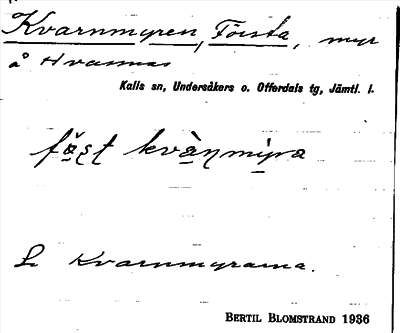 Kvarnmyren, Första, myr
å Hvasnas
Kalls sn, Undersåkers o. Offerdals tg, Jämtl. l.
fø̌ṣṭ kvàṇmy̱ra
Se Kvarnmyrarna.
BERTIL BLOMSTRAND 1936